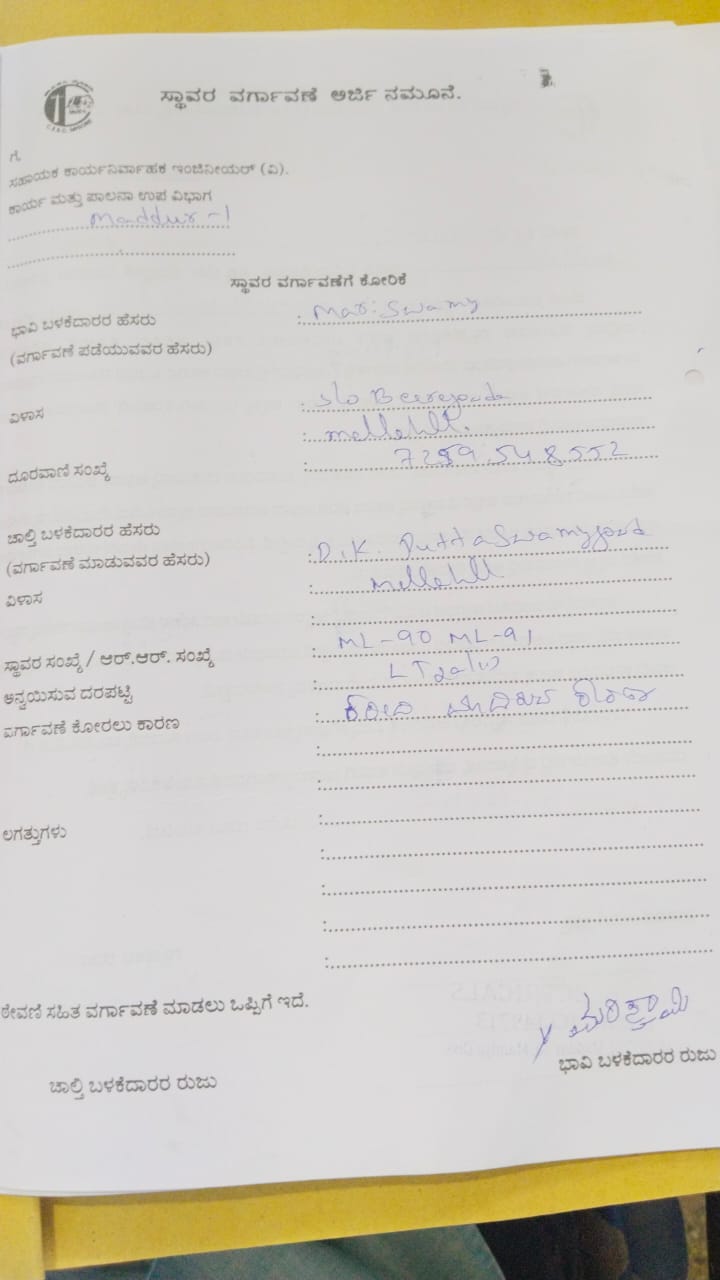 ಸ್ಥಾವರ ವರ್ಗಾವಣೆ ಅರ್ಜಿ ನಮೂನೆ.
ಗೆ,
ಸಹಾಯಕ ಕಾರ್ಯನಿರ್ವಾಹಕ ಇಂಜಿನೀಯರ್ (ವಿ).
ಕಾರ್ಯ ಮತ್ತು ಪಾಲನಾ ಉಪ ವಿಭಾಗ
Maddur - 1
ಸ್ಥಾವರ ವರ್ಗಾವಣೆಗೆ ಕೋರಿಕೆ
ಭಾವಿ ಬಳಕೆದಾರರ ಹೆಸರು : Mari Swamy
(ವರ್ಗಾವಣೆ ಪಡೆಯುವವರ ಹೆಸರು)
ವಿಳಾಸ : S/o Beeregowda
:
ದೂರವಾಣಿ ಸಂಖ್ಯೆ :
ಚಾಲ್ತಿ ಬಳಕೆದಾರರ ಹೆಸರು
(ವರ್ಗಾವಣೆ ಮಾಡುವವರ ಹೆಸರು) : D.K. PuttaSwamygowd
ವಿಳಾಸ :
:
ಸ್ಥಾವರ ಸಂಖ್ಯೆ / ಆರ್.ಆರ್. ಸಂಖ್ಯೆ : ML-90 ML-91
ಅನ್ವಯಿಸುವ ದರಪಟ್ಟಿ :
ವರ್ಗಾವಣೆ ಕೋರಲು ಕಾರಣ : ಕರೀದಿ ಮಾಡಿರುವ ಕಾರಣ
:
:
ಲಗತ್ತುಗಳು :
:
:
:
:
ಠೇವಣಿ ಸಹಿತ ವರ್ಗಾವಣೆ ಮಾಡಲು ಒಪ್ಪಿಗೆ ಇದೆ.
ಮರಿಸ್ವಾಮಿ
ಚಾಲ್ತಿ ಬಳಕೆದಾರರ ರುಜು ಭಾವಿ ಬಳಕೆದಾರರ ರುಜು